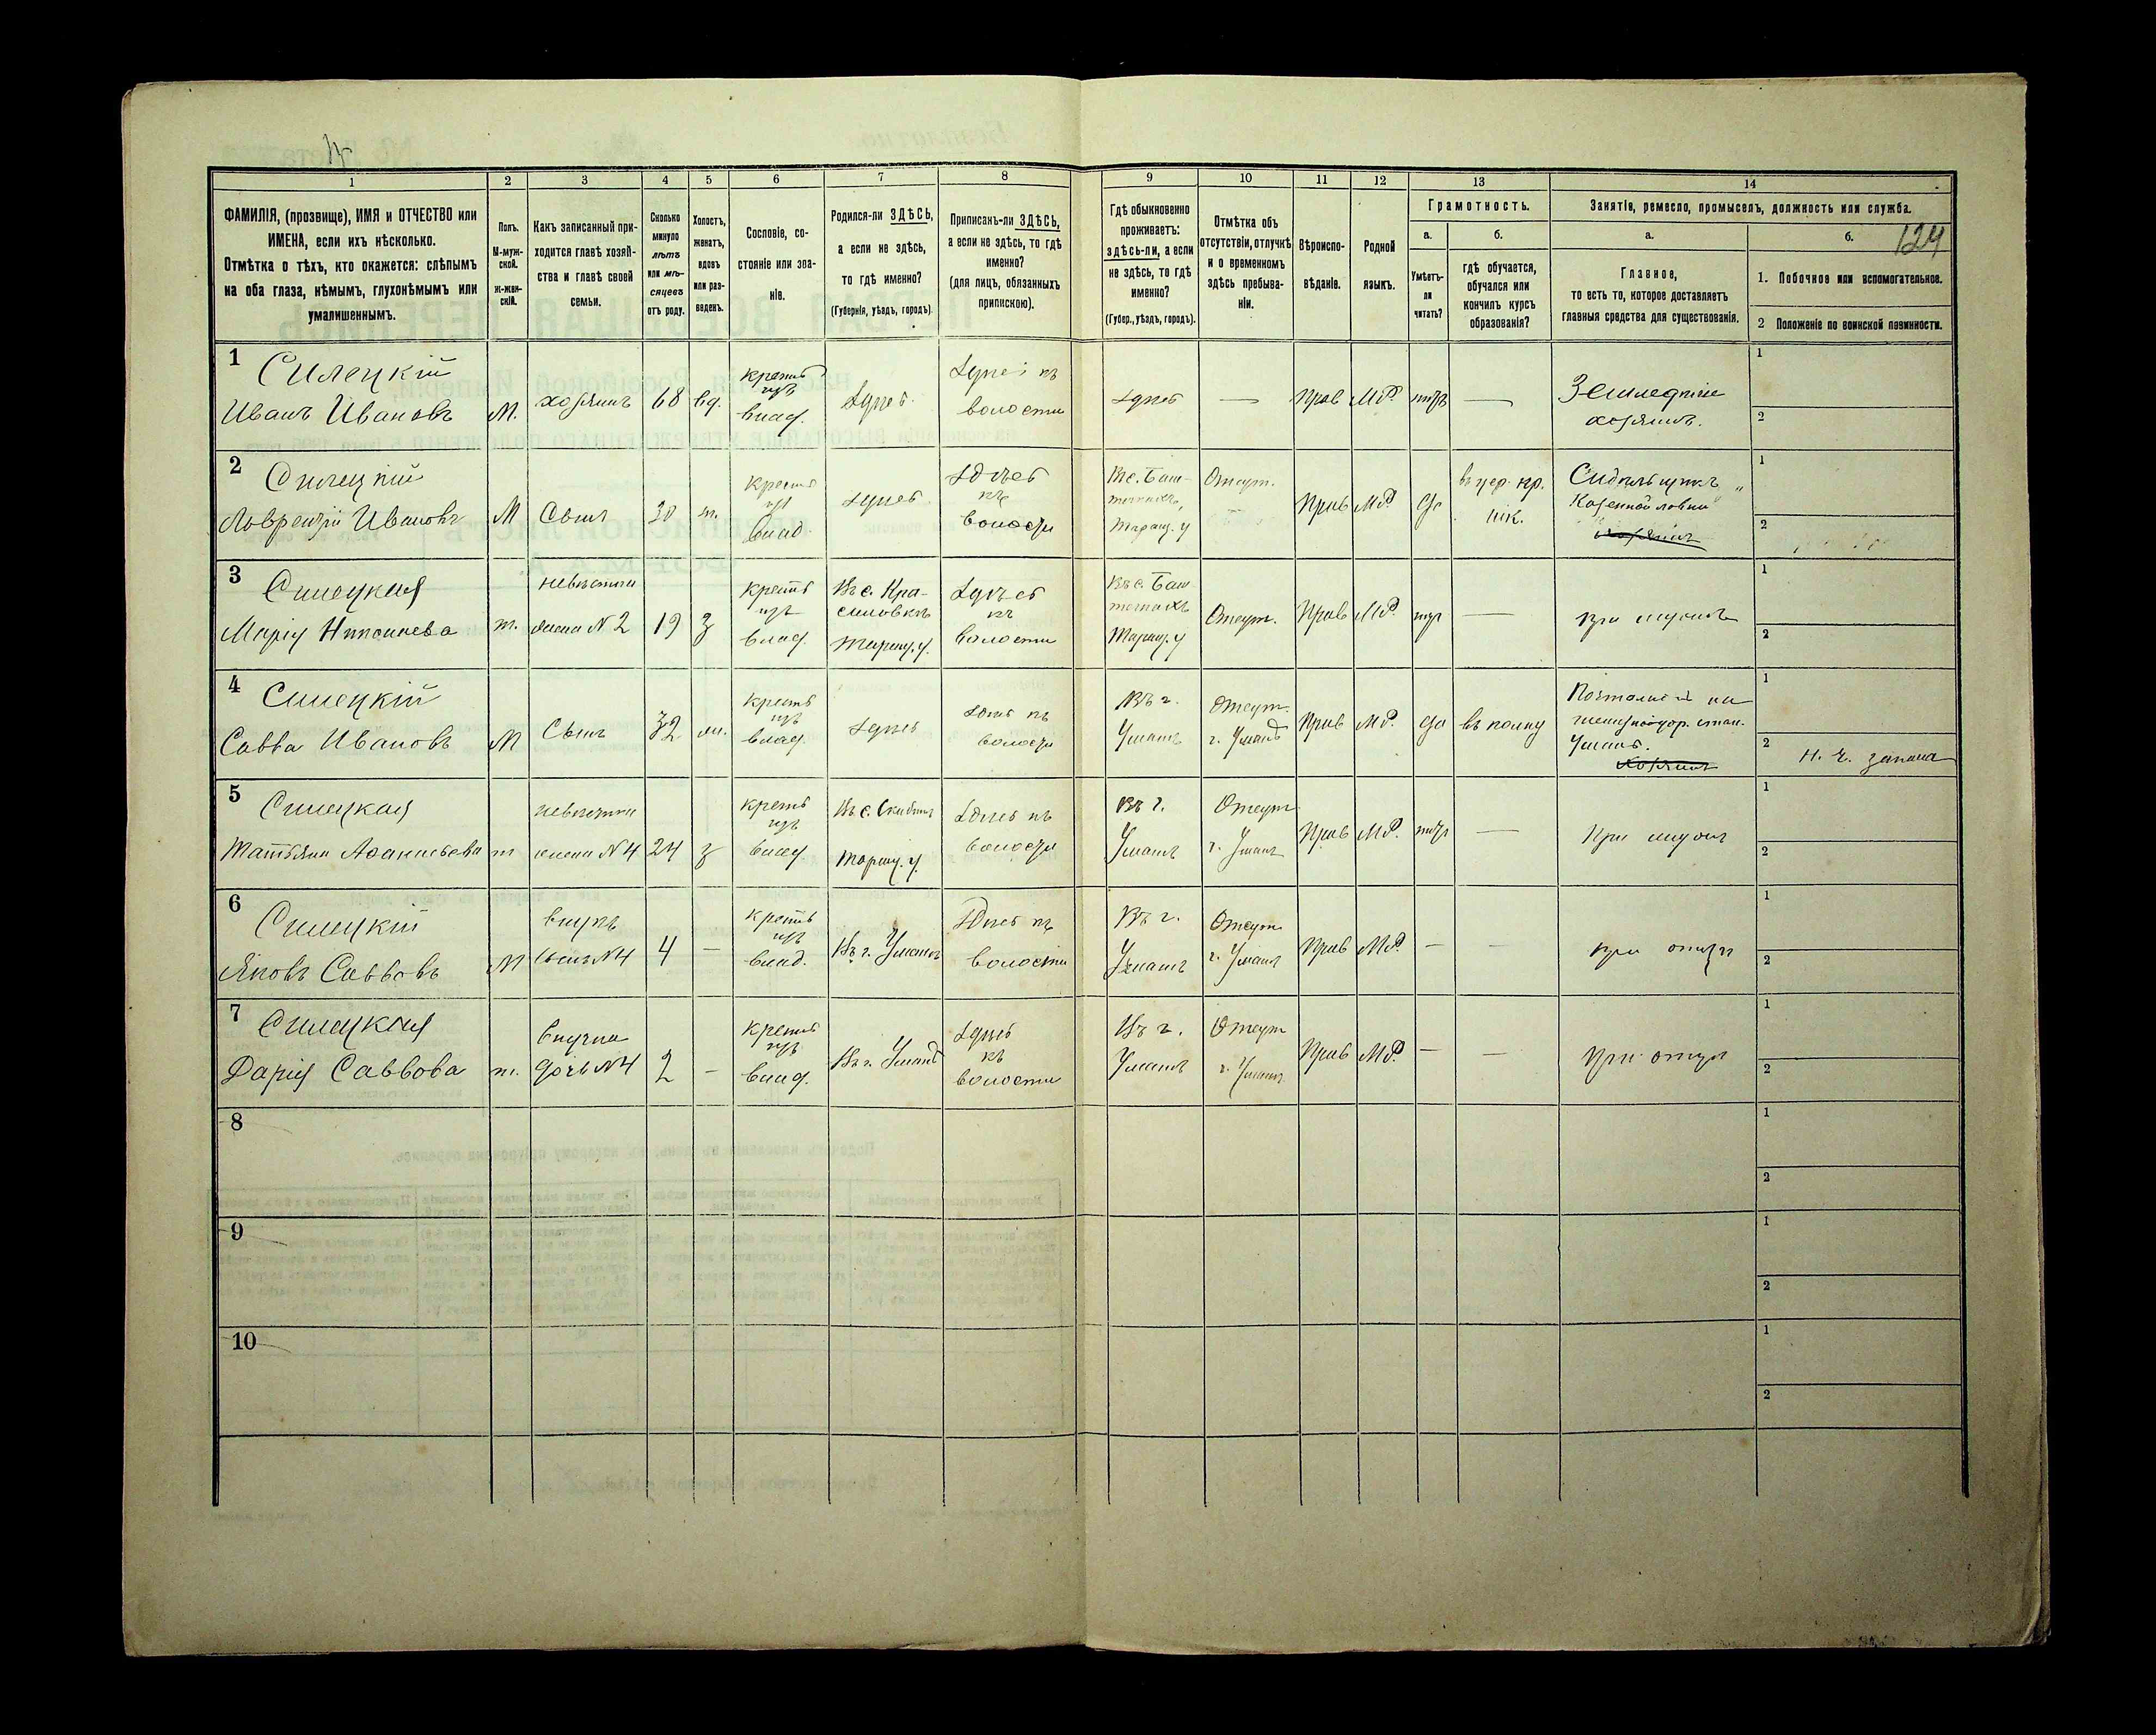 124
1 2 3 4 5 6 7 8 9 10 11 12 13 14
ФАМИЛІЯ, (прозвище), ИМЯ и ОТЧЕСТВО или
ИМЕНА, если ихъ нѣсколько.
Отмѣтка о тѣхъ, кто окажется: слѣпымъ
на оба глаза, нѣмымъ, глухонѣмымъ или
умалишеннымъ.
Полъ.
М-муж-
ской.
Ж-жен-
скій.
Какъ записанный при-
ходится главѣ хозяй-
ства и главѣ своей
семьи.
Сколько
минуло
лѣтъ
или мѣ-
сяцевъ
отъ роду.
Холостъ,
женатъ,
вдовъ
или раз-
веденъ.
Сословіе, со-
стояніе или зва-
ніе.
Родился-ли ЗДѢСЬ,
а если не здѣсь,
то гдѣ именно?
(Губернія, уѣздъ, городъ).
Приписанъ-ли ЗДѢСЬ,
а если не здѣсь, то гдѣ
именно?
(для лицъ, обязанныхъ
припискою).
Гдѣ обыкновенно
проживаетъ:
здѣсь-ли, а если
не здѣсь, то гдѣ
именно?
(Губер., уѣздъ, городъ).
Отмѣтка объ
отсутствіи, отлучкѣ
и о временномъ
здѣсь пребыва-
ніи.
Вѣроиспо-
вѣданіе.
Родной
языкъ.
Грамотность.
а.
Умѣетъ-
ли
читать?
б.
гдѣ обучается,
обучался или
кончилъ курсъ
образованія?
Занятіе, ремесло, промыселъ, должность или служба.
а.
Главное,
то есть то, которое доставляетъ
главныя средства для существованія.
б.
1. Побочное или вспомогательное.
2 Положеніе по воинской повинности.
1
Силецкій
Иванъ Ивановъ
М.
хозяинъ
68
вд.
крестъ
изъ
влад.
Здѣсь
Здѣсь къ
волости
Здѣсь
—
Прав
МР.
—
Земледѣліе
хозяинъ.
1
2
2
Силецкій
Лаврентій Ивановъ
М
Сынъ
30
ж.
крестъ
изъ
влад.
Здѣсь
Здѣсь
къ
волости
Въ с. Баш-
Таращ. у
Отсут.
Прав
МР
да
въ цер. пр.
шк.
Сидѣльщикъ
Казенной лавки
хозяинъ
1
2
3
Силецкая
Марія
ж.
невѣстка
жена №2
19
з
крестъ
изъ
влад.
Въ с. Кра-
Таращ. у.
Здѣсь
къ
волости
Въ с. Баш
Таращ. у
Отсут.
Прав
МР.
—
при мужѣ
1
2
4
Силецкій
Савва Ивановъ
М
Сынъ
32
жн.
крестъ
изъ
влад.
Здѣсь
Здѣсь къ
волости
Въ г.
Умань
Отсут.
г. Умань
Прав
МР.
да
въ полку
Умань.
хозяинъ
1
2
Н. Ч. запаса
5
Силецкая
Татьяна Афанасьева
ж
невѣстка
жена №4
24
з
крестъ
изъ
влад.
Въ с.
Таращ. у.
Здѣсь къ
волости
Въ г.
Умань
Отсут
г. Умань
Прав
МР.
—
При мужѣ
1
2
6
Силецкій
Яковъ Саввовъ
М
внукъ
сынъ №4
4
—
крестъ
изъ
влад.
Въ г. Умань
Здѣсь къ
волости
Въ г.
Умань
Отсут
г. Умань
Прав
МР.
—
—
при отцѣ
1
2
7
Силецкая
Дарія Саввова
ж.
внучка
дочь №4
2
—
крестъ
изъ
влад.
Въ г. Умань
Здѣсь
къ
волости
Въ г.
Умань
Отсут
г. Умань
Прав
МР.
—
—
При отцѣ
1
2
8
1
2
9
1
2
10
1
2